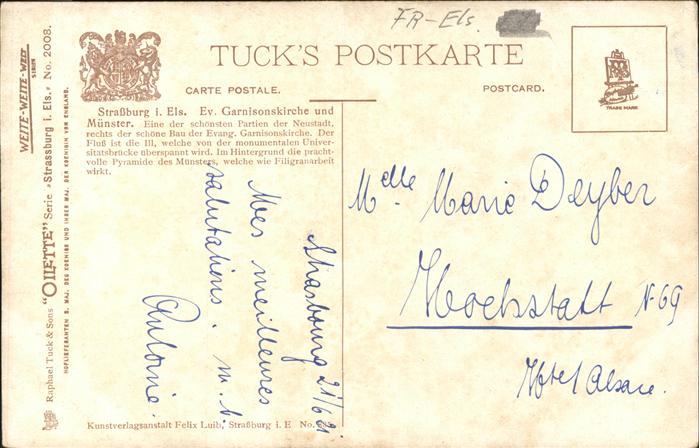 FR-Els.
TUCK'S POSTKARTE
CARTE POSTALE.
POSTCARD.
TRADE MARK
WEITE-WEITE-WELT
SERIEN
Raphael Tuck & Sons "OILETTE" Serie »Strassburg i. Els.« No. 2008.
HOFLIEFERANTEN S. MAJ. DES KOENIGS UND IHRER MAJ. DER KOENIGIN VON ENGLAND.
Straßburg i. Els. Ev. Garnisonskirche und
Münster. Eine der schönsten Partien der Neustadt,
rechts der schöne Bau der Evang. Garnisonskirche. Der
Fluß ist die Ill, welche von der monumentalen Univer-
sitätsbrücke überspannt wird. Im Hintergrund die pracht-
volle Pyramide des Münsters, welche wie Filigranarbeit
wirkt.
Strasbourg 21/6 21.
Mes meilleures
salutations.
Antoine.
Melle. Marie Deyber
Hochstatt N-69
Hotel Alsace.
Kunstverlagsanstalt Felix Luib, Straßburg i. E No.